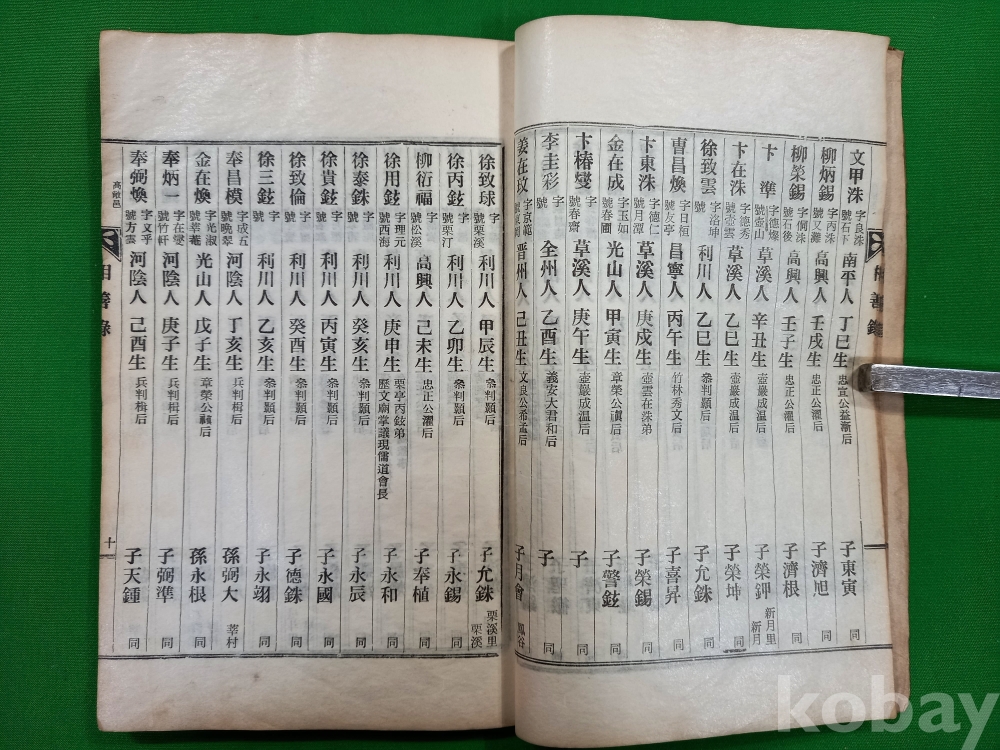 文甲洙 字良洙 號石下 南平人 丁巳生 忠宣公益漸后 子東寅 同
柳炳錫 字丙洙 號又難 高興人 壬戌生 忠正公濯后 子濟旭 同
柳榮錫 號石後 高興人 壬子生 忠正公濯后 子濟根 同
卞準 字德燦 號壺山 草溪人 辛丑生 壺巖成温后 子榮鉀 新月里 新月
卞在洙 字德秀 號壺雲 草溪人 乙巳生 壺巖成温后 子榮坤 同
徐致雲 字洛坤 號 利川人 乙巳生 參判顯后 子允銖 同
曺昌煥 字日桓 號友亭 昌寧人 丙午生 竹林秀文后 子喜昇 同
卞東洙 字德仁 號月潭 草溪人 庚戌生 壺雲在洙弟 子榮錫 同
金在成 字玉如 號春圃 光山人 甲寅生 章榮公 后 子警鉉 同
卞椿燮 字 號春齋 草溪人 庚午生 壺巖成温后 子 同
李圭彩 字 號 全州人 乙酉生 義安大君和后 子 同
姜在玟 字京範 晋州人 己丑生 文良公希孟后 子月會
相善錄
徐致球 字 號栗溪 利川人 甲辰生 參判顯后 子允銖 栗溪里 栗溪
徐丙鉉 字 號栗汀 利川人 乙卯生 參判顯后 子永錫 同
柳衍福 字 號松溪 高興人 己未生 忠正公濯后 子奉植 同
徐用鉉 字理元 號西海 利川人 庚申生 栗亭丙鉉弟 歷文廟掌議現儒道會長 子永和 同
徐泰銖 字 號 利川人 癸亥生 參判顯后 子永辰 同
徐貴鉉 字 號 利川人 丙寅生 參判顯后 子永國 同
徐致倫 字 號 利川人 癸酉生 參判顯后 子德銖 同
徐三鉉 字 號 利川人 乙亥生 參判顯后 子永翊 同
奉昌模 字成五 號晩翠 河陰人 丁亥生 兵判楫后 孫弼大 莘村
金在煥 字光淑 光山人 戊子生 章榮公 后 孫永根 同
奉炳一 字在燮 號竹軒 河陰人 庚子生 兵判楫后 子弼準 同
奉弼煥 字文乎 號方雲 河陰人 己酉生 兵判楫后 子天鍾 同
高敞邑
相善錄
十
kobay